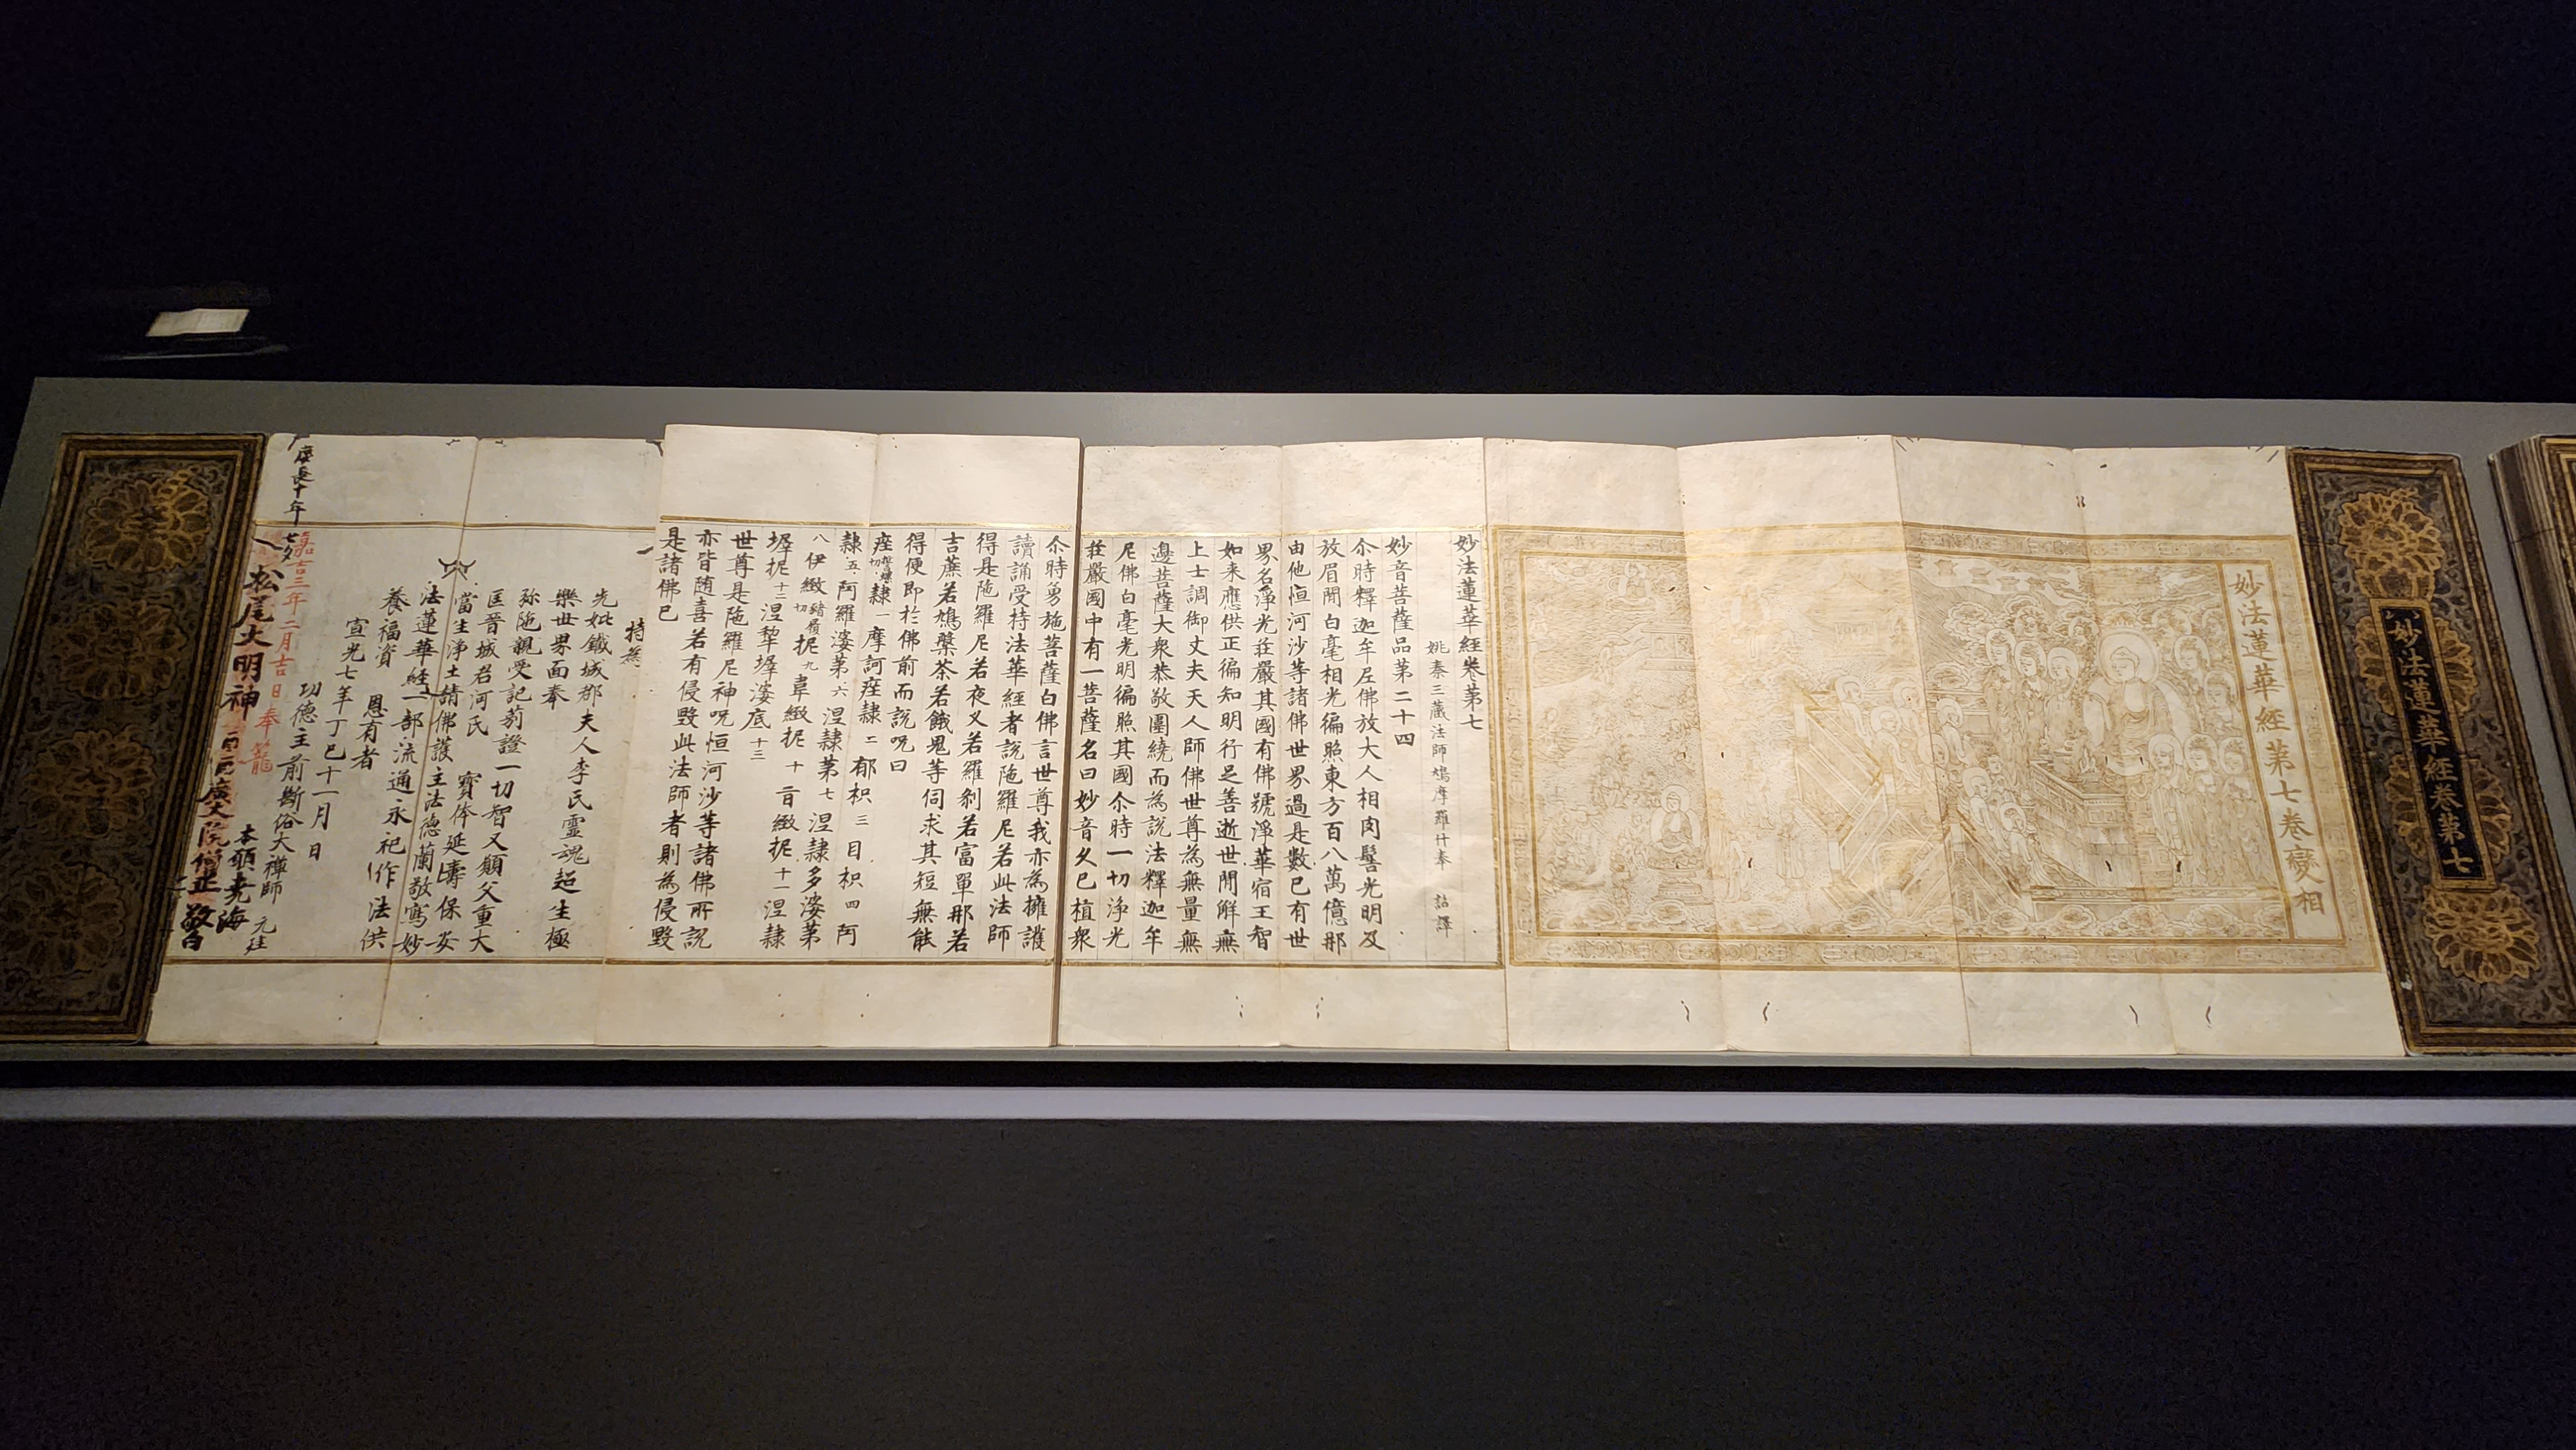 妙法蓮華經卷第七
妙法蓮華經第七卷變相
妙法蓮華經卷第七
姚秦三藏法師鳩摩羅什奉 詔譯
妙音菩薩品第二十四
尒時釋迦牟尼佛放大人相肉髻光明及
放眉閒白毫相光徧照東方百八萬億那
由他恒河沙等諸佛世界過是數已有世
界名淨光莊嚴其國有佛號淨華宿王智
如来應供正徧知明行足善逝世閒解無
上士調御丈夫天人師佛世尊為無量無
邊菩薩大衆恭敬圍繞而為說法釋迦牟
尼佛白毫光明徧照其國尒時一切淨光
莊嚴國中有一菩薩名曰妙音久已植衆
尒時勇施菩薩白佛言世尊我亦為擁護
讀誦受持法華經者說陁羅尼若此法師
得是陁羅尼若夜叉若羅刹若富單那若
吉蔗若鳩槃茶若餓鬼等伺求其短無能
得便即於佛前而說呪曰
痤隷一摩訶痤隷二郁枳三目枳四阿
隷五阿羅婆第六涅隷第七涅隷多婆第
八伊緻抳九韋緻抳十旨緻抳十一涅隷
墀抳十二涅犂墀婆底十三
世尊是陁羅尼神呪恒河沙等諸佛所說
亦皆随喜若有侵毀此法師者則為侵毀
是諸佛已
持為
先妣鐵城郡夫人李氏靈魂超生極
樂世界面奉
弥陁親受記莂證一切智又願父重大
匡晋城君河氏 寳体延壽保安
當生淨土請佛護主法德蘭敬寫妙
法蓮華経一部流通永祀作法供
養福資 恩有者
宣光七年丁巳十一月 日
功德主前斷俗大禪師 元珪
慶長十年
嘉吉三年二月吉日奉籠
松尾大明神
本願堯海
敬白